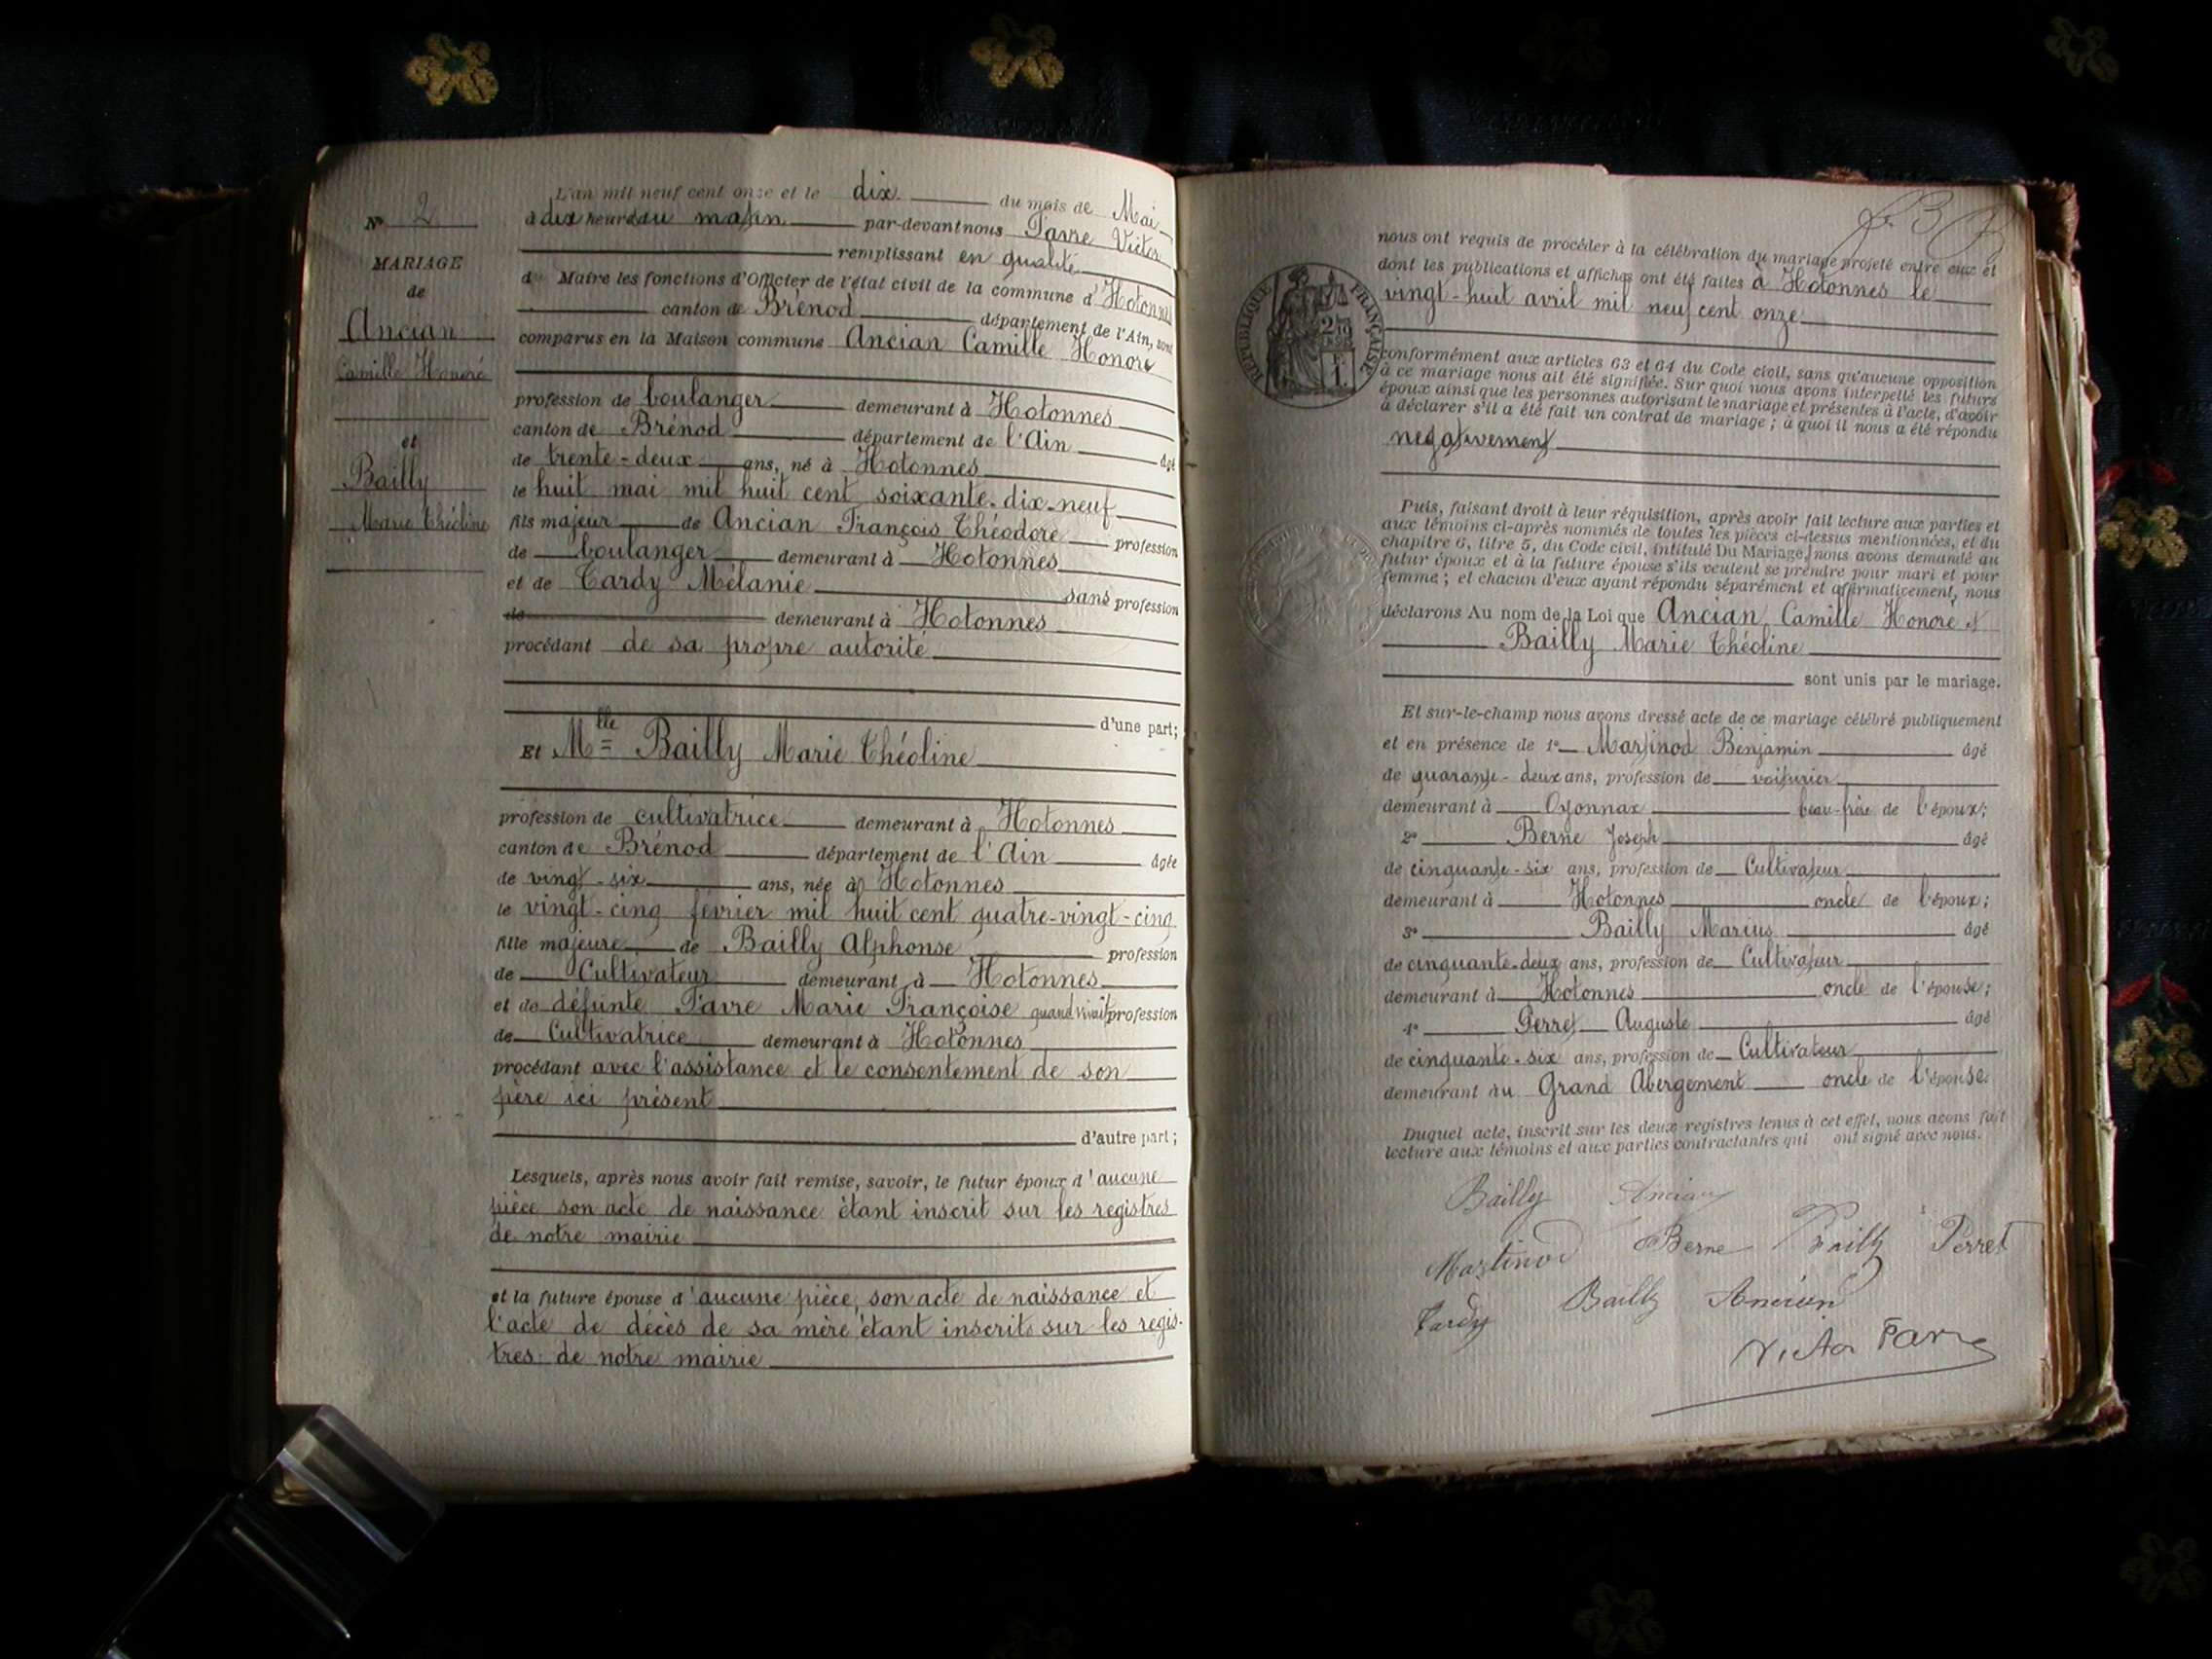 Nº 2
MARIAGE
de
Ancian
Camille Honoré
et
Bailly
Marie Théoline
L'an mil neuf cent onze et le dix du mois de Mai
à dix heures du matin par-devant nous Favre Victor
remplissant en qualité
de Maire les fonctions d'Officier de l'état civil de la commune d'Hotonnes
canton de Brénod département de l'Ain, sont
comparus en la Maison commune Ancian Camille Honoré
profession de boulanger demeurant à Hotonnes
canton de Brénod département de l'Ain âgé
de trente-deux ans, né à Hotonnes
le huit mai mil huit cent soixante-dix-neuf
fils majeur de Ancian François Théodore profession
de boulanger demeurant à Hotonnes
et de Tardy Mélanie sans profession
de demeurant à Hotonnes
procédant de sa propre autorité
d'une part;
Et Mlle Bailly Marie Théoline
profession de cultivatrice demeurant à Hotonnes
canton de Brénod département de l'Ain âgée
de vingt-six ans, née à Hotonnes
le vingt-cinq février mil huit cent quatre-vingt-cinq
fille majeure de Bailly Alphonse profession
de Cultivateur demeurant à Hotonnes
et de défunte Favre Marie Françoise quand vivait profession
de Cultivatrice demeurant à Hotonnes
procédant avec l'assistance et le consentement de son
père ici présent
d'autre part;
Lesquels, après nous avoir fait remise, savoir, le futur époux d'aucune
pièce son acte de naissance étant inscrit sur les registres
de notre mairie
et la future épouse d'aucune pièce, son acte de naissance et
l'acte de décès de sa mère étant inscrits sur les regis-
tres de notre mairie
RÉPUBLIQUE FRANÇAISE
nous ont requis de procéder à la célébration du mariage projeté entre eux et
dont les publications et affiches ont été faites à Hotonnes le
vingt-huit avril mil neuf cent onze
conformément aux articles 63 et 64 du Code civil, sans qu'aucune opposition
à ce mariage nous ait été signifiée. Sur quoi nous avons interpellé les futurs
époux ainsi que les personnes autorisant le mariage et présentes à l'acte, d'avoir
à déclarer s'il a été fait un contrat de mariage; à quoi il nous a été répondu
négativement
Puis, faisant droit à leur réquisition, après avoir fait lecture aux parties et
aux témoins ci-après nommés de toutes les pièces ci-dessus mentionnées, et du
chapitre 6, titre 5, du Code civil, intitulé Du Mariage, nous avons demandé au
futur époux et à la future épouse s'ils veulent se prendre pour mari et pour
femme; et chacun d'eux ayant répondu séparément et affirmativement, nous
déclarons Au nom de la Loi que Ancian Camille Honoré et
Bailly Marie Théoline
sont unis par le mariage.
Et sur-le-champ nous avons dressé acte de ce mariage célébré publiquement
et en présence de 1º Martinod Benjamin âgé
de quarante-deux ans, profession de voiturier
demeurant à Oyonnax beau-frère de l'époux;
2º Berne Joseph âgé
de cinquante-six ans, profession de Cultivateur
demeurant à Hotonnes oncle de l'époux;
3º Bailly Marius âgé
de cinquante-deux ans, profession de Cultivateur
demeurant à Hotonnes oncle de l'épouse;
4º Perret Auguste âgé
de cinquante-six ans, profession de Cultivateur
demeurant au Grand Abergement oncle de l'épouse.
Duquel acte, inscrit sur les deux registres tenus à cet effet, nous avons fait
lecture aux témoins et aux parties contractantes qui ont signé avec nous.
Bailly Ancian
Martinod Berne Bailly Perret
Tardy Bailly Ancian
Victor Favre